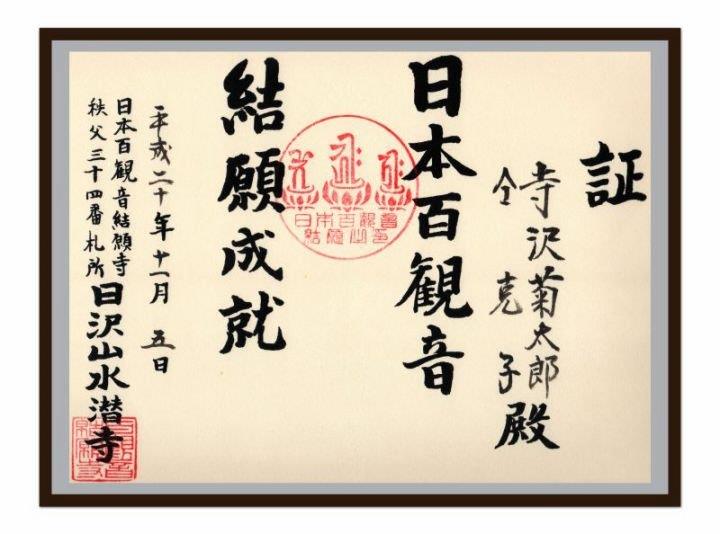 証
寺沢菊太郎
仝 克子 殿
日本百観音
結願成就
日本百観音
平成二十年十一月 五日
日本百観音結願寺
秩父三十四番札所
日沢山水潜寺